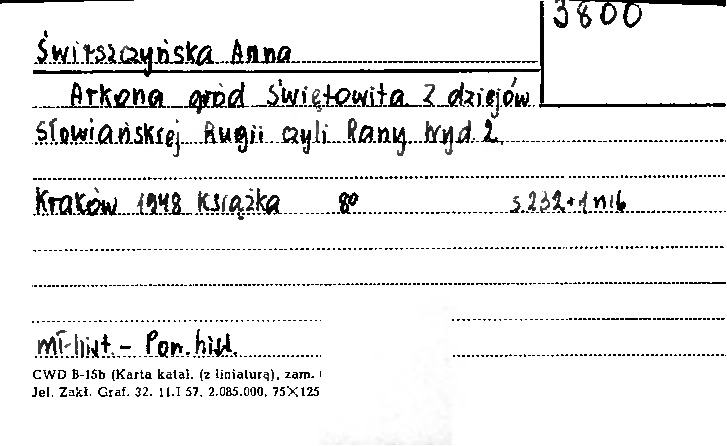 3800
Świrszczyńska Anna
Arkona gród Świętowita Z dziejów
Słowiańskiej Rugii czyli Rany Wyd 2.
Kraków 1948 Książka 8º s 232+1 nlb
mł-hist. - Pow. hist.
CWD B-15b (Karta katal. (z liniaturą), zam.
Jel. Zakł. Graf. 32. 11.I 57. 2.085.000. 75×125